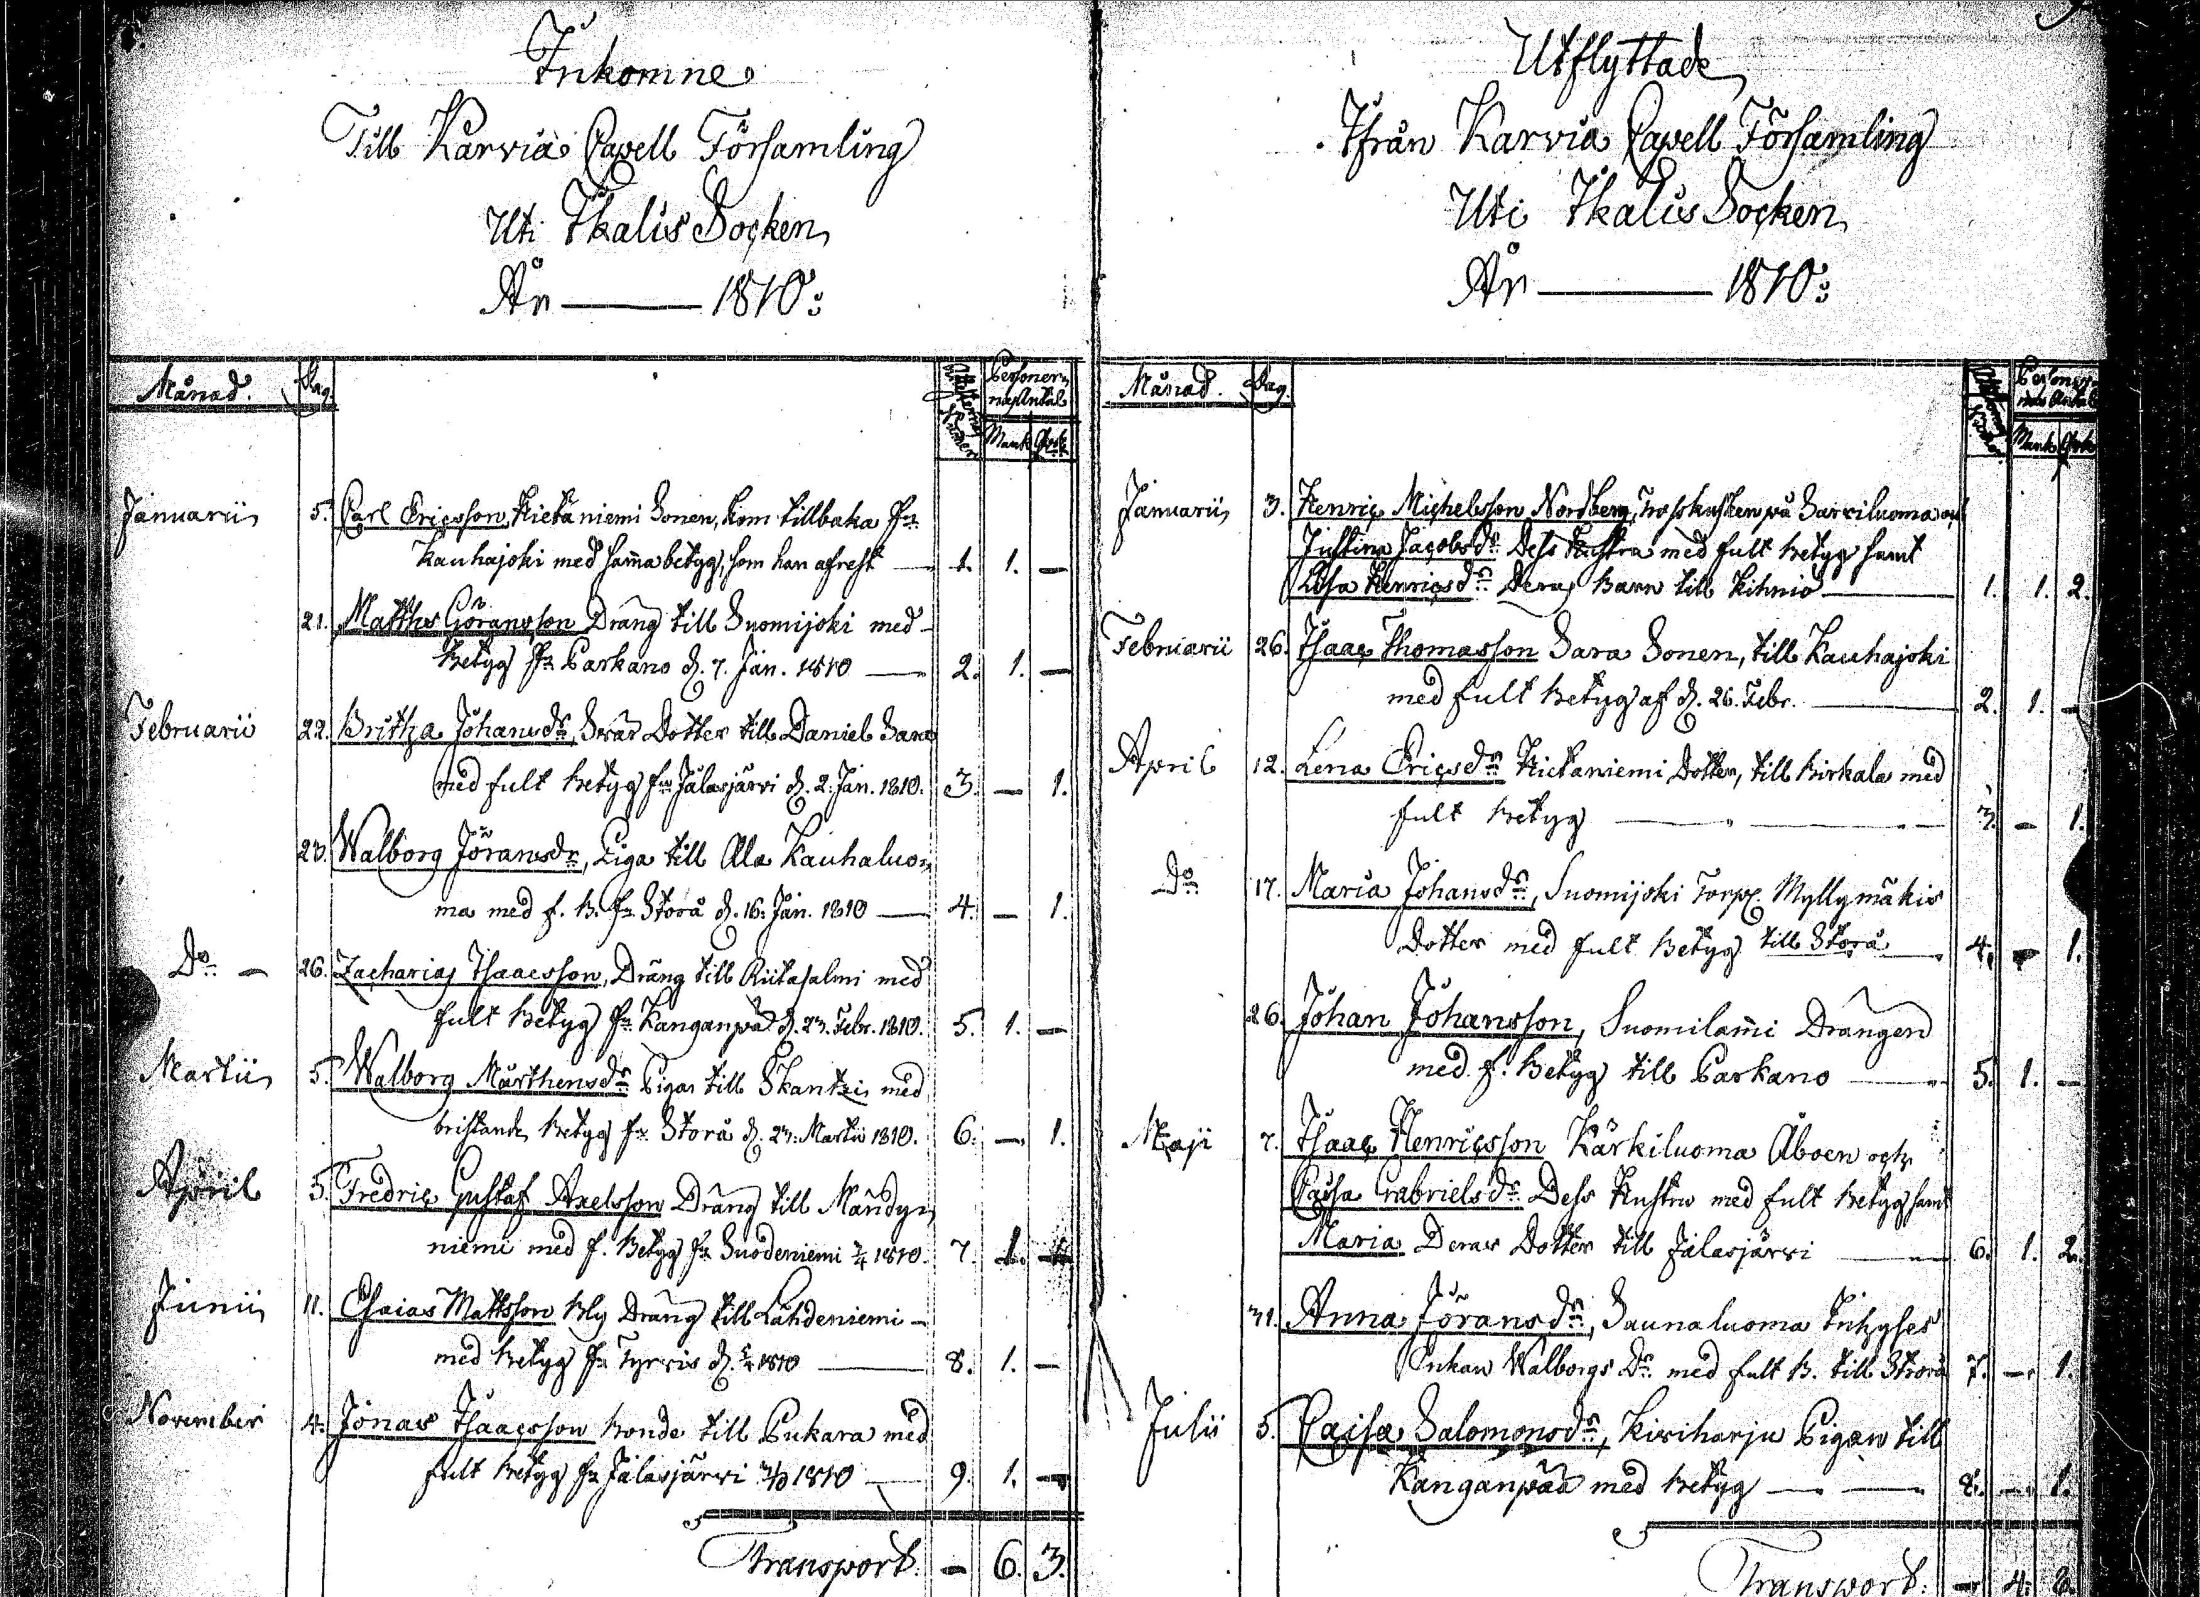 Inkomne
Till Karvia Capell Församling
Uti Ikalis Socken
År — 1810:
Månad. Dag. Attesternas Numer Personernas Antal
Mank. Qvk.
Januarii 5. Carl Ericsson, Kietäniemi Sonen, kom tillbaka fr.
Kauhajoki med samma betyg, som han afrest — 1. 1. —
21. Matths Göransson Dräng till Suomijoki med
Betyg fr. Parkano d. 7. Jan. 1810 — 2. 1. —
Februarii 22. Britha Johansdr, Svär Dotter till Daniel Sara
med fult betyg fr. Jalasjärvi d. 2. Jan. 1810. 3. — 1.
23. Walborg Jöransdr, Piga till Ala Kauhaluo-
ma med f. B. fr. Storå d. 16. Jan. 1810 — 4. — 1.
Do — 26. Zacharias Isaacsson, Dräng till Riitasalmi med
fult Betyg fr. Kanganpää d. 23. Febr. 1810. 5. 1. —
Martii 5. Walborg Mårthensdr Pigan till Skantzi med
bristande betyg fr. Storå d. 23. Martii 1810. 6. — 1.
April 5. Fredric Gustaf Axelsson Dräng till Mändy-
niemi med f. Betyg fr. Suodeniemi 2/4 1810. 7. 1. —
Junii 11. Esaias Mattsson Bly Dräng till Lähdeniemi —
med betyg fr. Tyrvis d. 1810 — 8. 1. —
November 4. Jonas Isaacsson Bonde till Pukara med
fult betyg fr. Jalasjärvi 1810 — 9. 1. —
Transport. — 6. 3.
Utflyttade
Ifrån Karvia Capell Församling
Uti Ikalis Socken
År — 1810:
Månad. Dag. Personernas Antal
Mank. Qvk.
Januarii 3. Henric Michelsson Nordberg, Trosskusken på Sarviluoma och
Justina Jacobsdr Dess Hustru med fult betyg samt
Lisa Henricsdr Deras Barn till Kihniö — 1. 1. 2.
Februarii 26. Isaac Thomasson Sara Sonen, till Kauhajoki
med fult Betyg af d. 26. Febr. — 2. 1. —
April 12. Lena Ericsdr Kietäniemi Dotter, till Birkala med
fult Betyg — 3. — 1.
Do 17. Maria Johansdr, Suomijoki Torp. Myllymäkis
Dotter med fult Betyg till Storå — 4. — 1.
26. Johan Johansson, Suomilammi Drängen
med f. Betyg till Parkano — 5. 1. —
Maji 7. Isaac Henricsson Kärkiluoma Åboen och
Caisa Gabrielsdr Dess Hustru med fult betyg samt
Maria Deras Dotter till Jalasjärvi — 6. 1. 2.
31. Anna Jöransdr, Saunaluoma Inhyses
Enkan Walborgs Dr. med fult B. till Storå 7. — 1.
Julii 5. Caisa Salomonsdr, Kiviharju Pigan till
Kanganpää med Betyg — 8. — 1.
Transport. — 4. 8.